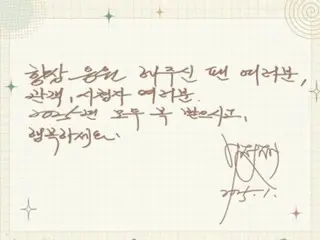 항상 응원 해주신 팬 여러분,
관객, 시청자 여러분.
2025년 모두 복 받으시고,
행복하세요.
2025. 1.